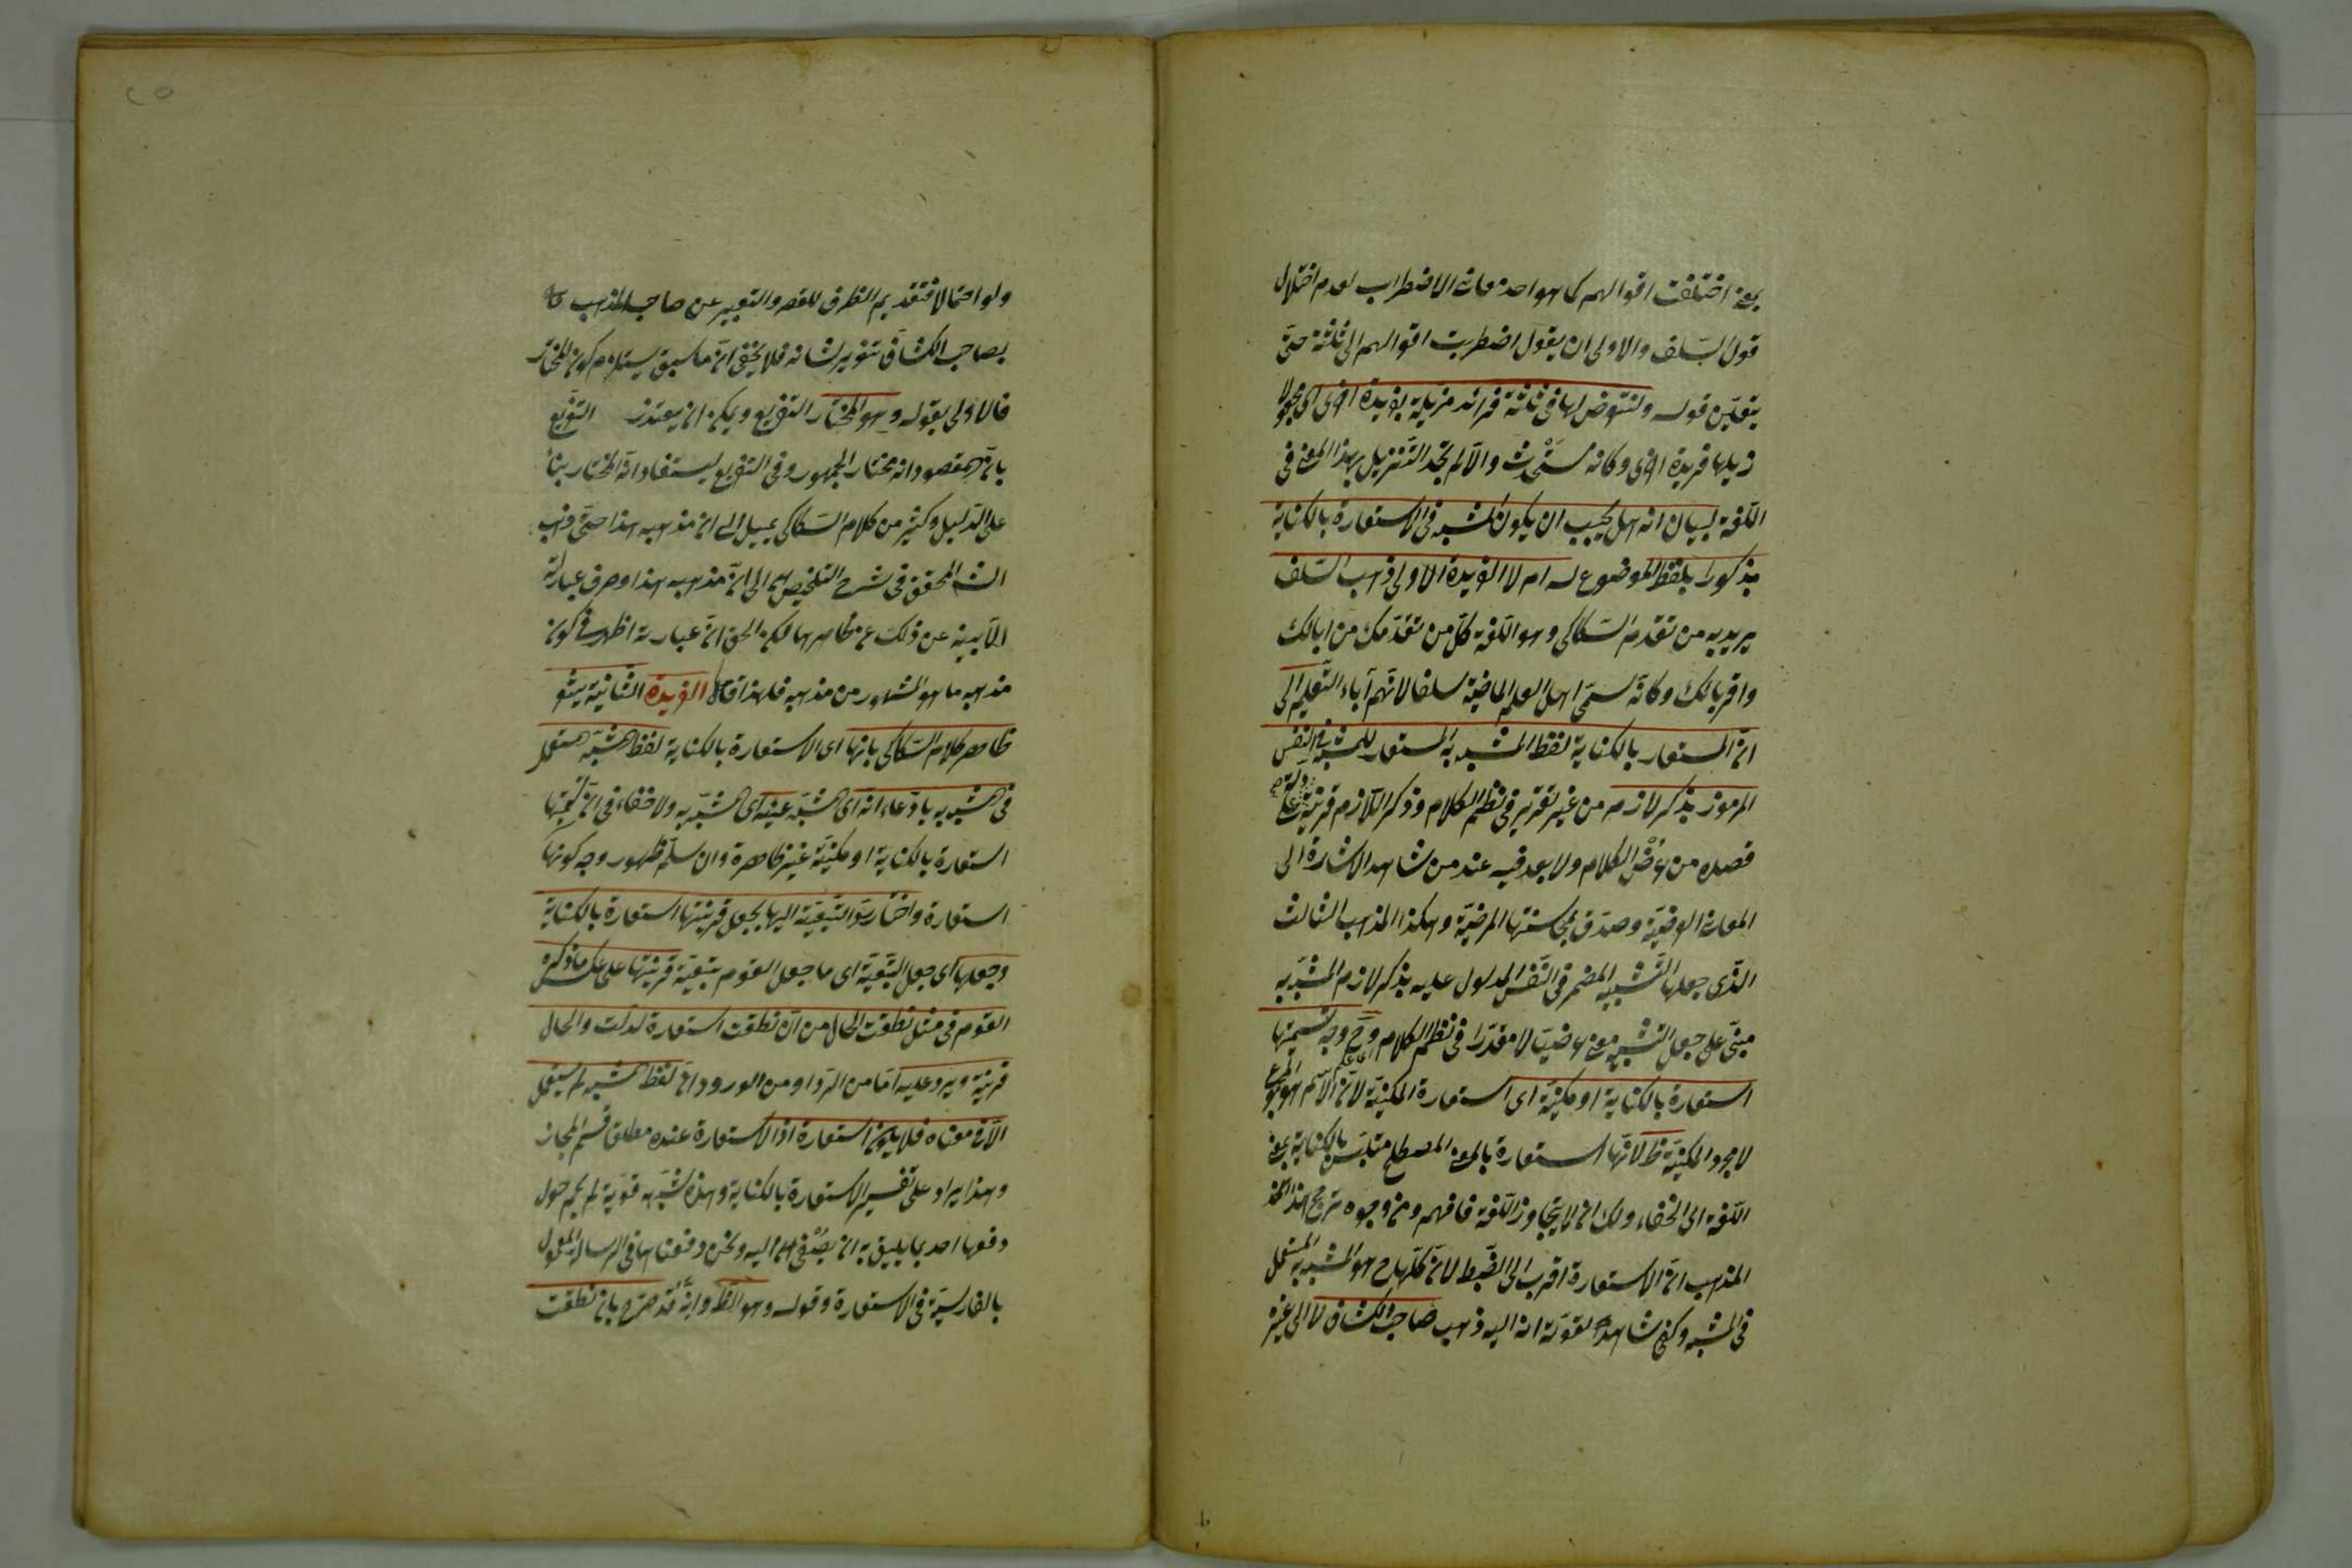 بمعنى اختلفت اقوالهم كما هو احد معانى الاضطراب لعدم اختلال
قول السّلف والاولى ان يقول اضطربت اقوالهم الى ثلثة حتّى
يتعيّن قوله ولنتعرض لها فى ثلثة فرائد مزيّلة بفريدة اخرى اى مجعولا
ذيلها فريدة اخرى وكانه مستحدث والّا لم نجد التّنزيل بهذا المعنى فى
اللّغة لبيان انه هل يجب ان يكون المشبه فى الاستعارة بالكناية
مذكورا بلفظ الموضوع له ام لا الفريدة الاولى ذهب السّلف
يريد به من تقدم السّكاكى وهو فى اللّغة كلّ من تقدّمك من ابائك
واقربائك وكانّه سمّى اهل العلم الماضية سلفا لانّهم آباء التّعليم الى
انّ المستعار بالكناية لفظ المشبه به المستعار للمشبه فى النفس
المرموز بذكر لازمه من غير تقدير فى نظم الكلام وذكر اللّازم قرينة على
قصده من عرض الكلام ولا بعد فيه عند من شاهد الاشارة الى
المعانى العرضيّة وصدق بمحاسنها المرضيّة وهكذا المذهب الثالث
الذّى جعلها التّشبيه المضمر فى النّفس المدلول عليه بذكر لازم المشبّه به
مبنّى على جعل التشبيه معنى عرضيّا لا مقدّرا فى نظم الكلام وح وجه تسميتها
استعارة بالكناية او مكنيّة اى استعارة المكنيّة لانّ الاسم هو المجموع
لا مجرد المكنيّة ظ لانّها استعارة بالمعنى المصطلح متلبّس بالكناية بمعنى
اللّغة اى الخفاء ولك ان لا يتجاوز اللّغة فافهم ومن وجوه ترجيح هذا
المذهب انّ الاستعارة اقرب الى الضّبط لانّ كلّها ح هو المشبه به المستعمل
فى المشبه وكفى شاهدا لقوّته انه اليه ذهب صاحب الكشاف لا الى غيره
ولو احتمالا فتقديم الظرف للقصر والتعبير عن صاحب المذهب
بصاحب الكشاف تنويه لشانه فلا يخفى انّ ما سبق يستلزم كونه المختار
فالاولى بقوله وهو المختار التفريع ويمكن ان يعتذر التفريع
بانّ المقصود انه مختار الجمهور وفى التفريع يستفاد انّه المختار بناءً
على الدّليل وكثير من كلام السّكاكى يميل الى ان مذهبه هذا حتّى ذهب
الشّ المحقق فى شرح التلخيص الى انّ مذهبه هذا وصرف عباراته
الآبية عن ذلك عن ظاهرها لكن الحق انّ عبارته اظهر فى كون
مذهبه ما هو المشهور من مذهبه فلهذا قال الفريدة الثانية يشعر
ظاهر كلام السّكاكى بانها اى الاستعارة بالكناية لفظ المشبّه المستعمل
فى المشبه به بادّعاء انه اى المشبّه عينه اى المشبّه به ولا خفاء فى انّ تسميتها
استعارة بالكناية او مكنيّة غير ظاهرة وان سلّم ظهور وجه كونها
استعارة واختار ردّ التّبعيّة اليها بجعل قرينتها استعارة بالكناية
وجعلها اى جعل التّبعيّة اى ما جعل القوم تبعيّة قرينتها على عكس ما ذكره
القوم فى مثل نطقت الحال من انّ نطقت استعارة لدلّت والحال
قرينة ويرد عليه امّا من الرّد او من الورود ان لفظ المشبه لم يستعمل
الّا فى معناه فلا يكون استعارة اذ الاستعارة عنده مطلق قسم المجاز
وهذا ايراد على تفسير الاستعارة بالكناية وهذه شبهه قوّية لم يحم حول
دفعها احد بما يليق به ان يصغى اليه ونحن دفعناها فى الرسالة المعمول
بالفارسيّة فى الاستعارة وقوله وهو الظ وانّه قد صّرح بان نطقت